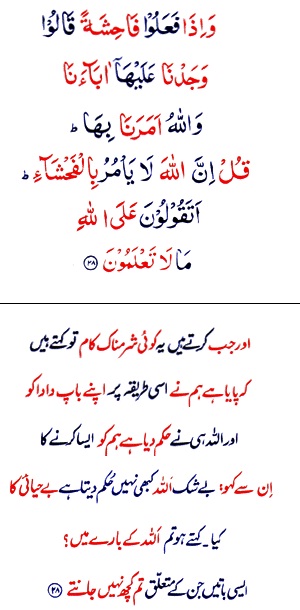 وَاِذَا فَعَلُوْا فَاحِشَةً قَالُوْا
وَجَدْنَا عَلَيْهَآ اٰبَآءَنَا
وَاللّٰهُ اَمَرَنَا بِهَا ؕ
قُلْ اِنَّ اللّٰهَ لَا يَاْمُرُ بِالْفَحْشَآءِ ؕ
اَتَقُوْلُوْنَ عَلَى اللّٰهِ
مَا لَا تَعْلَمُوْنَ ﴿۲۸﴾
اور جب کرتے ہیں یہ کوئی شرمناک کام تو کہتے ہیں
کہ پایا ہے ہم نے اسی طریقہ پر اپنے باپ دادا کو
اور اللہ ہی نے حکم دیا ہے ہم کو ایسا کرنے کا
اِن سے کہو: بے شک اللہ کبھی نہیں حُکم دیتا ہے بے حیائی کا
کیا۔ کہتے ہو تم اللہ کے بارے میں؟
ایسی باتیں جن کے متعلّق تم کچھ نہیں جانتے ﴿۲۸﴾